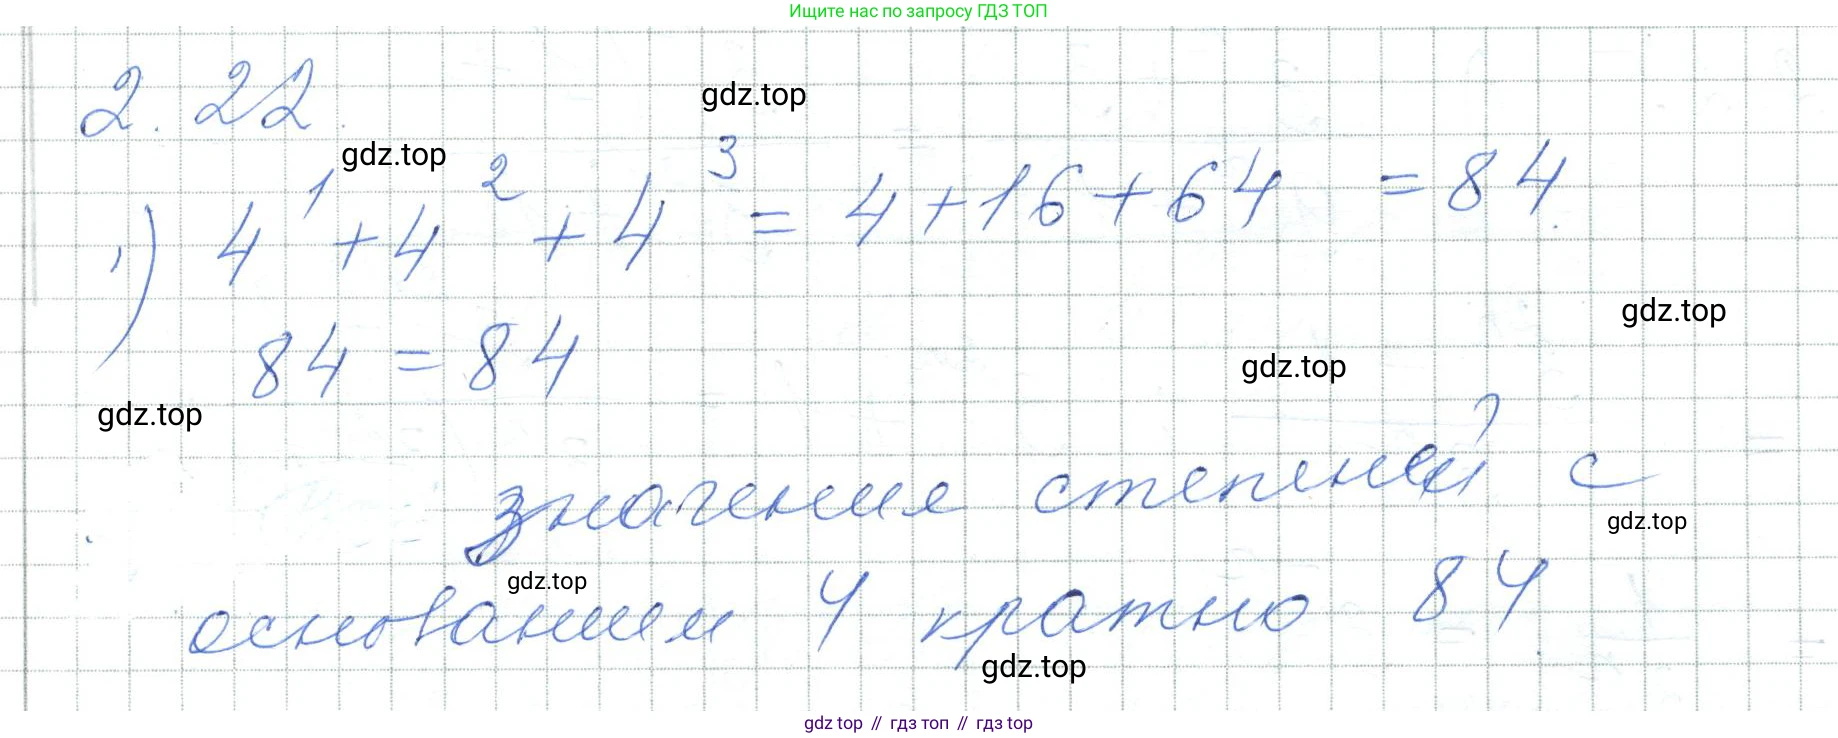 Ищите нас по запросу ГДЗ ТОП
2.22.
gdz.top
gdz.top
1) 4¹ + 4² + 4³ = 4 + 16 + 64 = 84.
gdz.top
84 = 84
gdz.top
gdz.top
значение степеней с
gdz.top
gdz.top
основанием 4 кратно 84
gdz.top
gdz top // гдз топ // гдз top